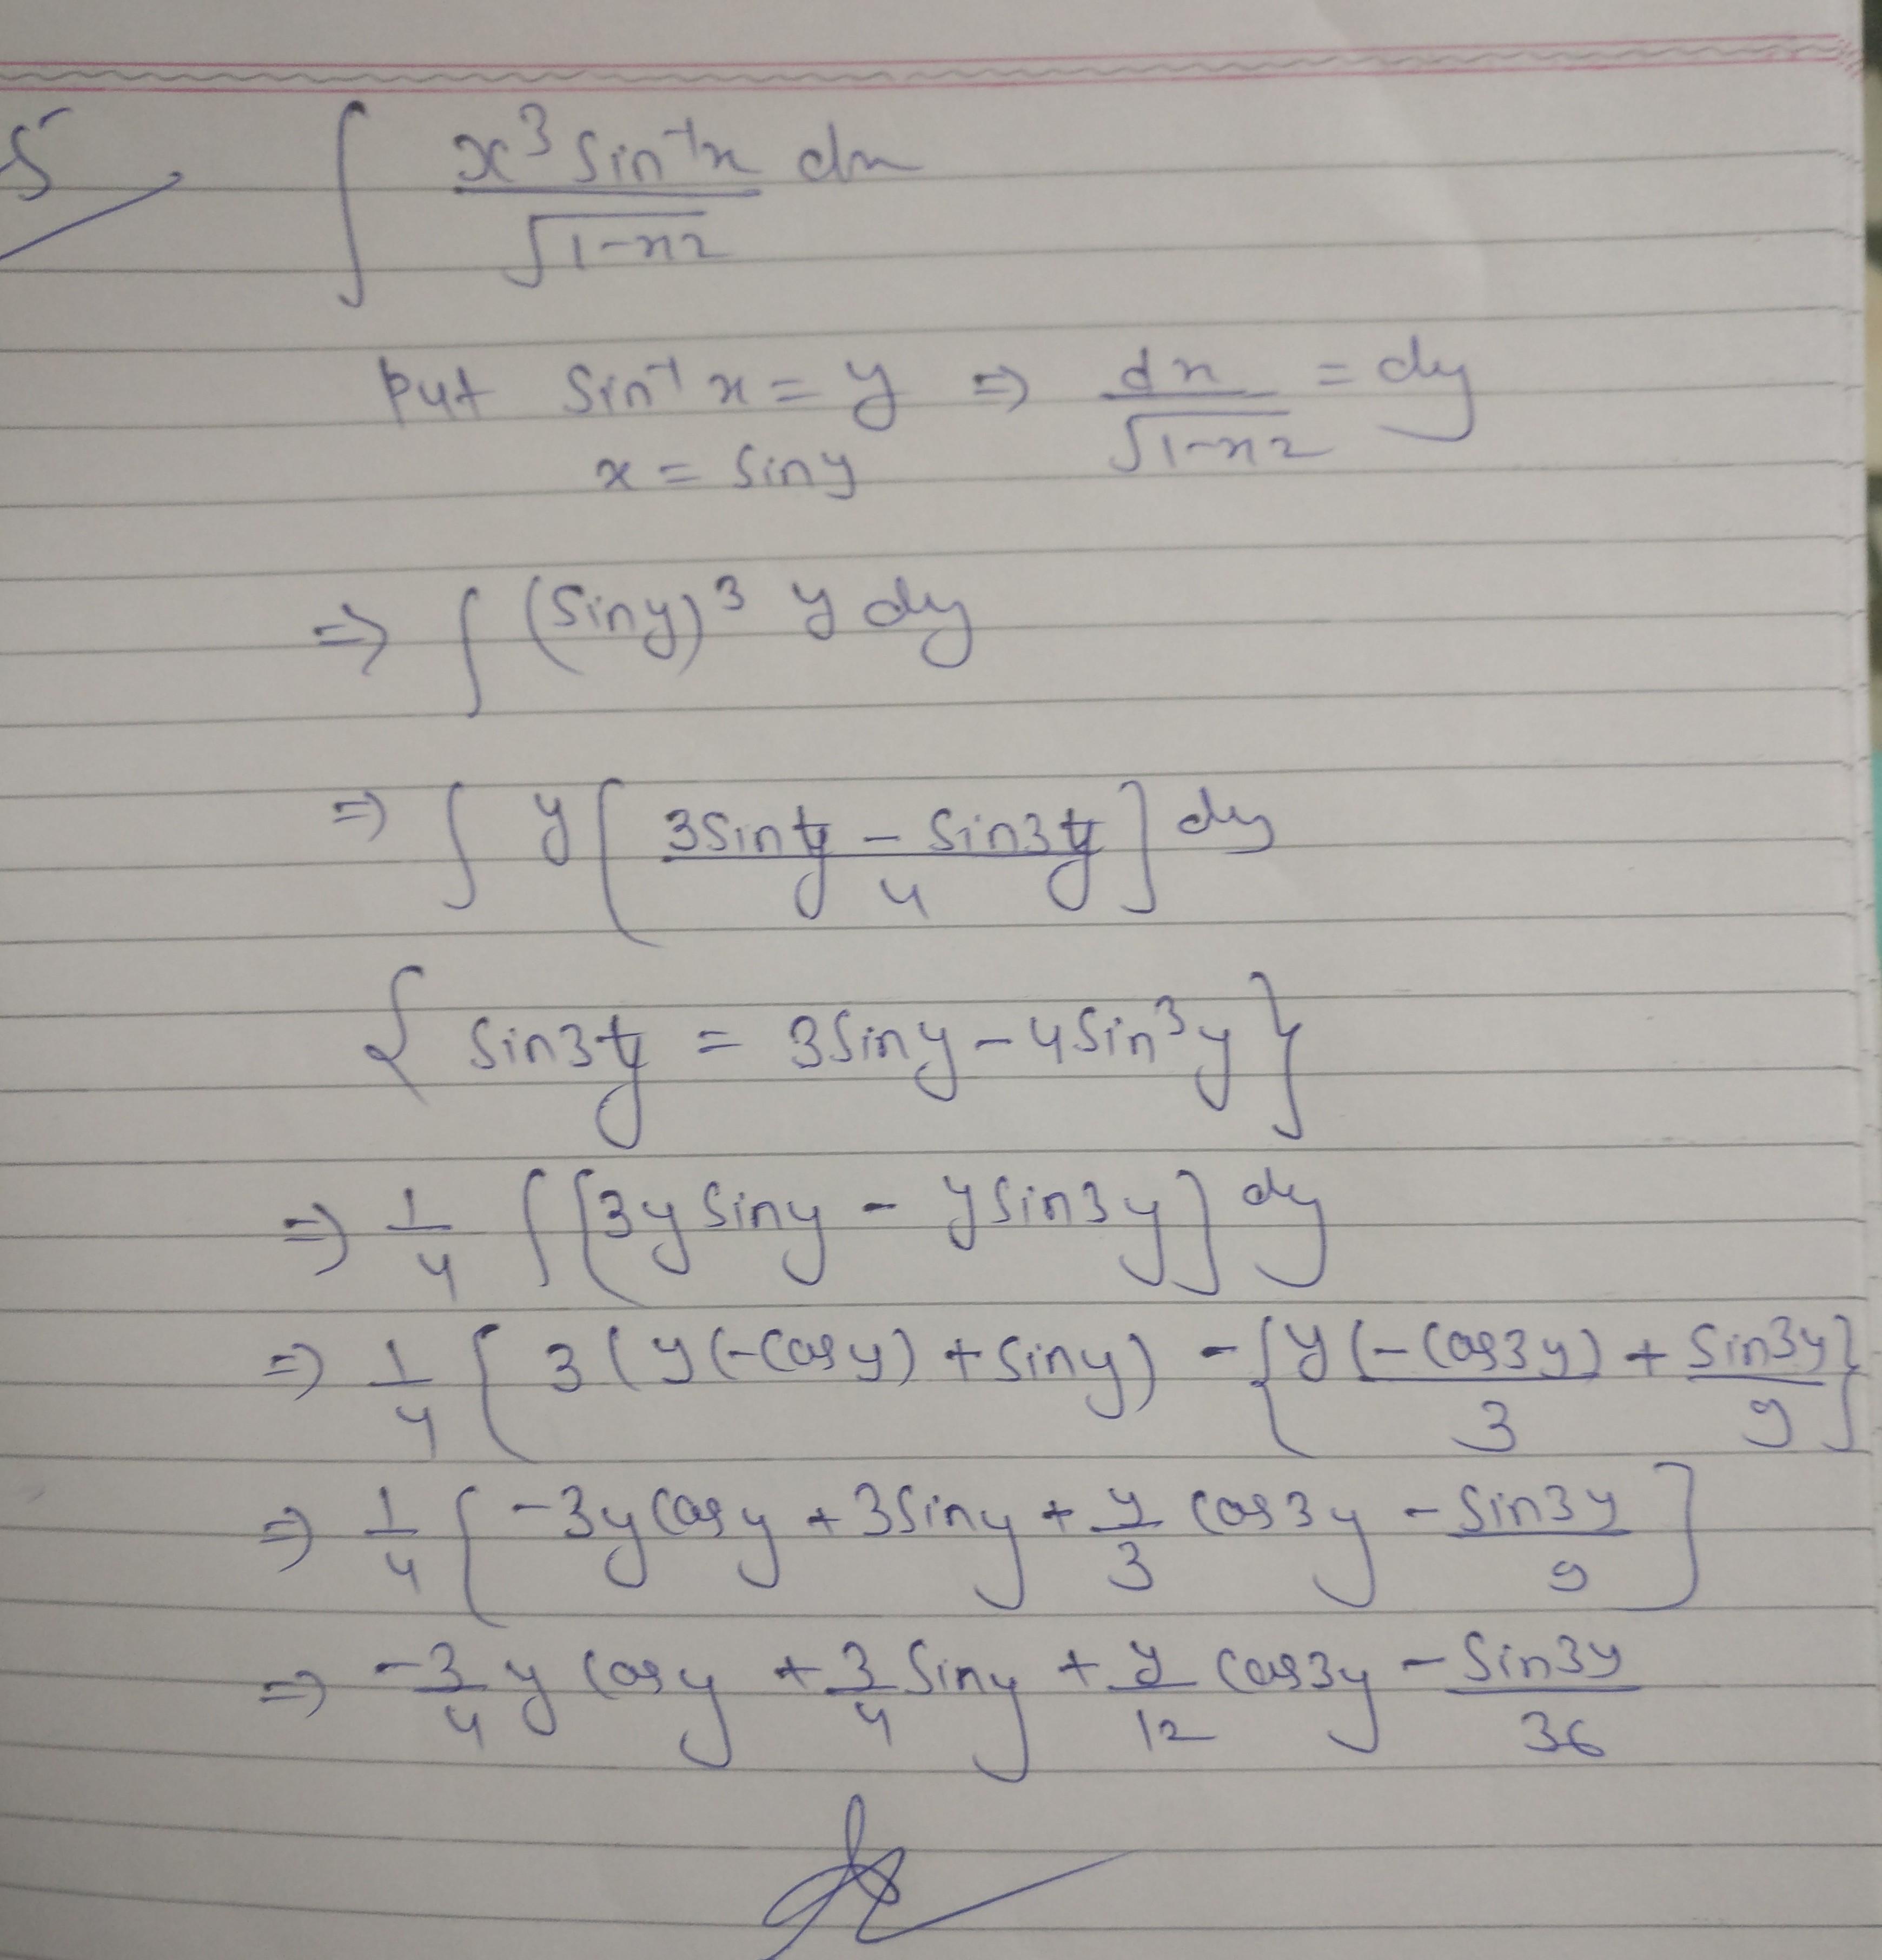 5 ∫ x³ sin⁻¹x dx / √1-x²
put sin⁻¹ x = y ⇒ dx / √1-x² = dy
x = siny
⇒ ∫ (siny)³ y dy
⇒ ∫ y [ 3siny - sin3y / 4 ] dy
{ sin3y = 3siny - 4sin³y }
⇒ 1/4 ∫ [3y siny - y sin3y] dy
⇒ 1/4 [ 3(y(-cosy) + siny) - { y(-cos3y)/3 + sin3y/9 } ]
⇒ 1/4 [ -3y cosy + 3siny + y/3 cos3y - sin3y/9 ]
⇒ -3/4 y cosy + 3/4 siny + y/12 cos3y - sin3y/36